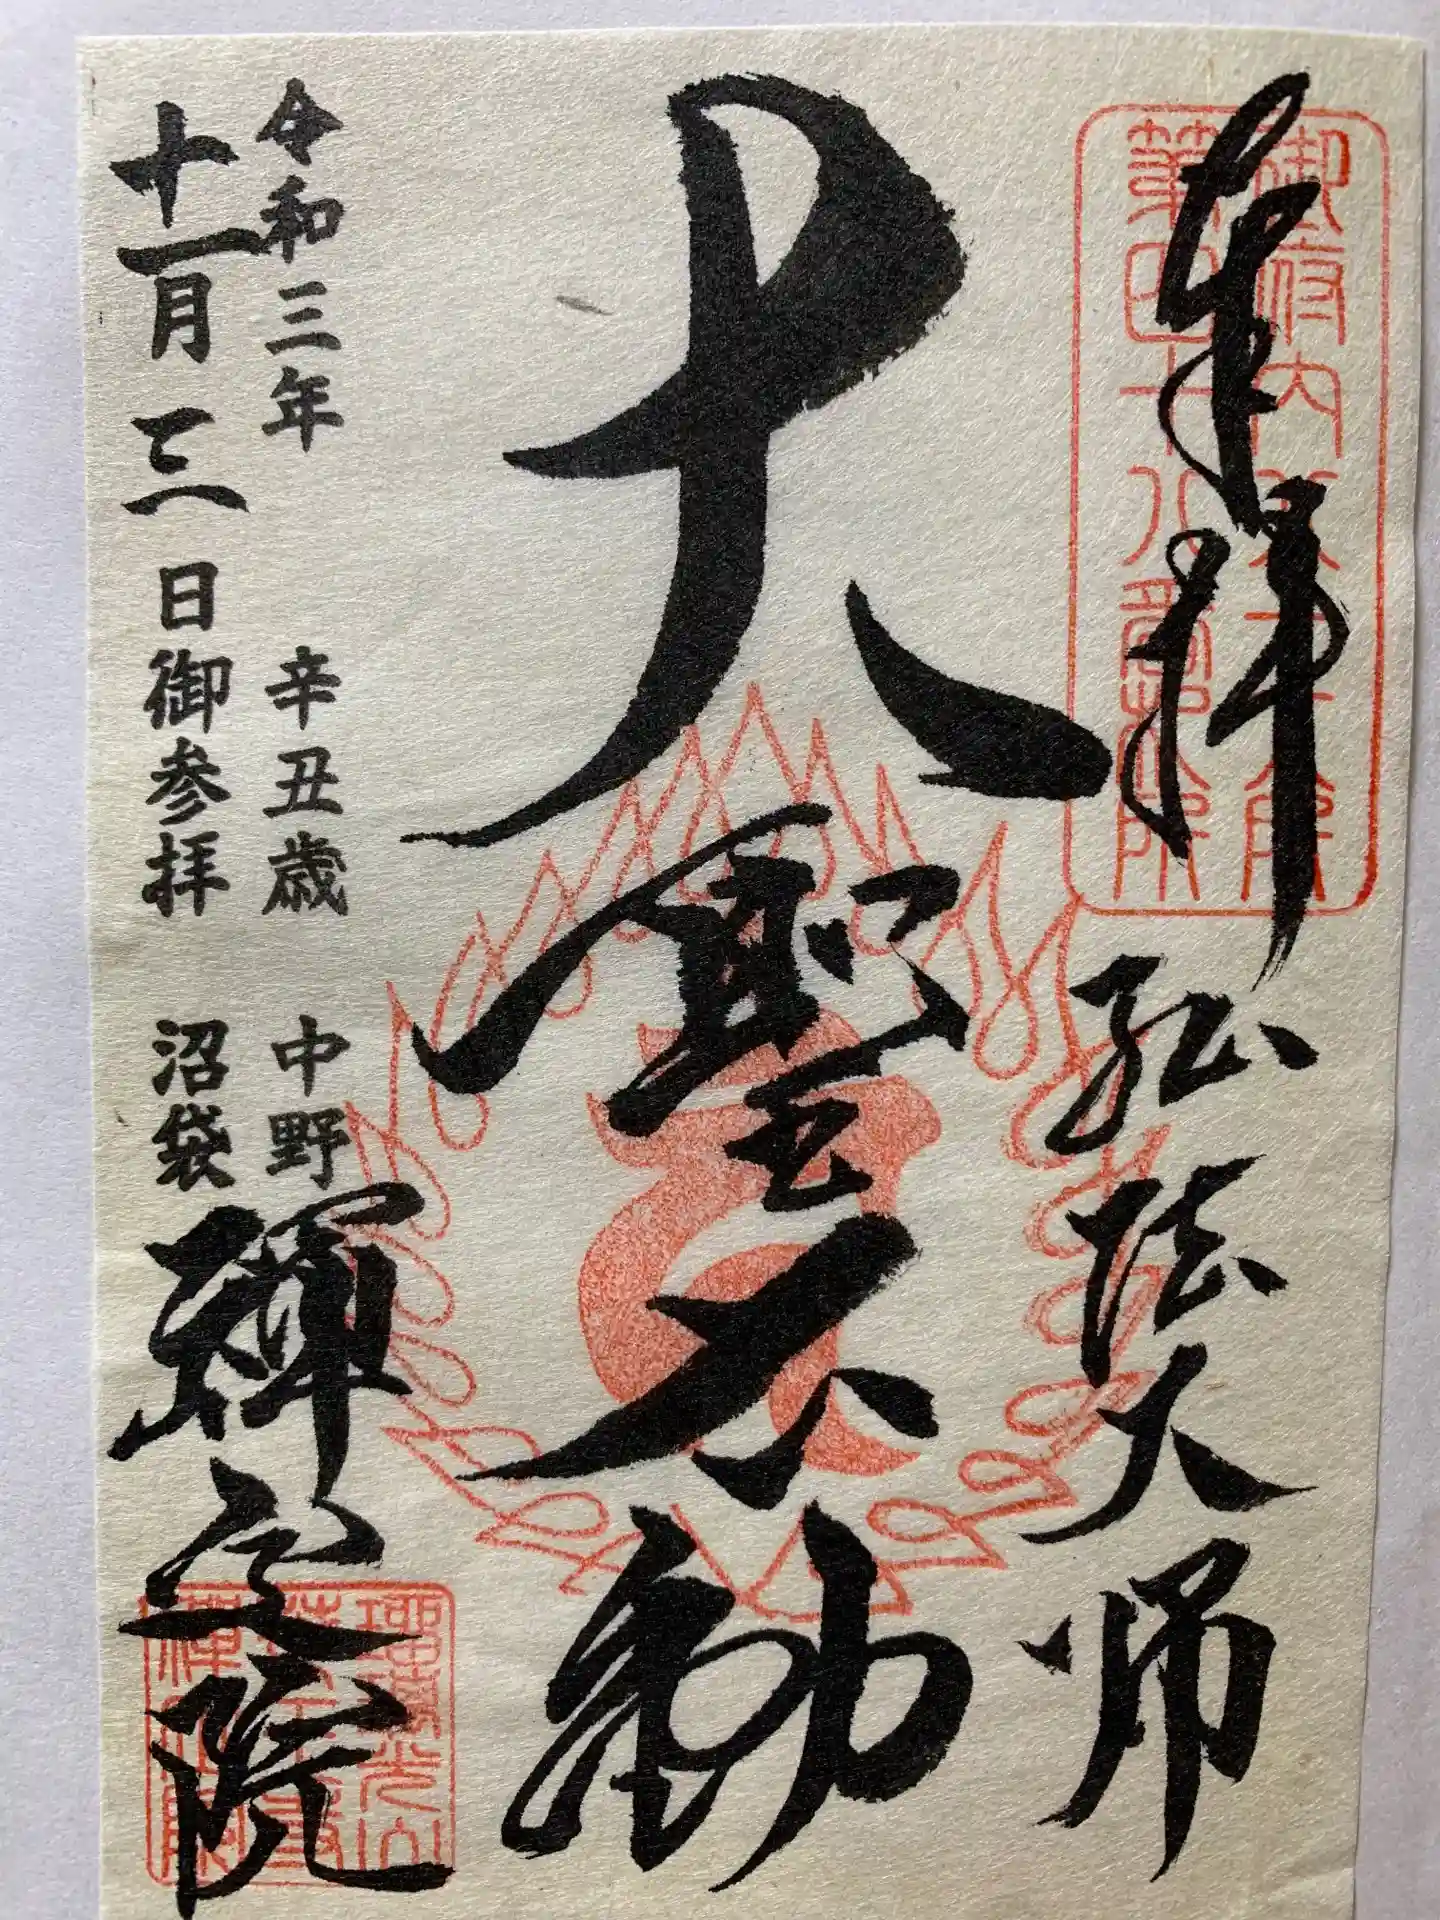 奉拝
弘法大師
大聖不動
令和三年 辛丑歳 中野
十一月三日御参拝 沼袋
禅定院
御府内八十八箇所
第四十八番